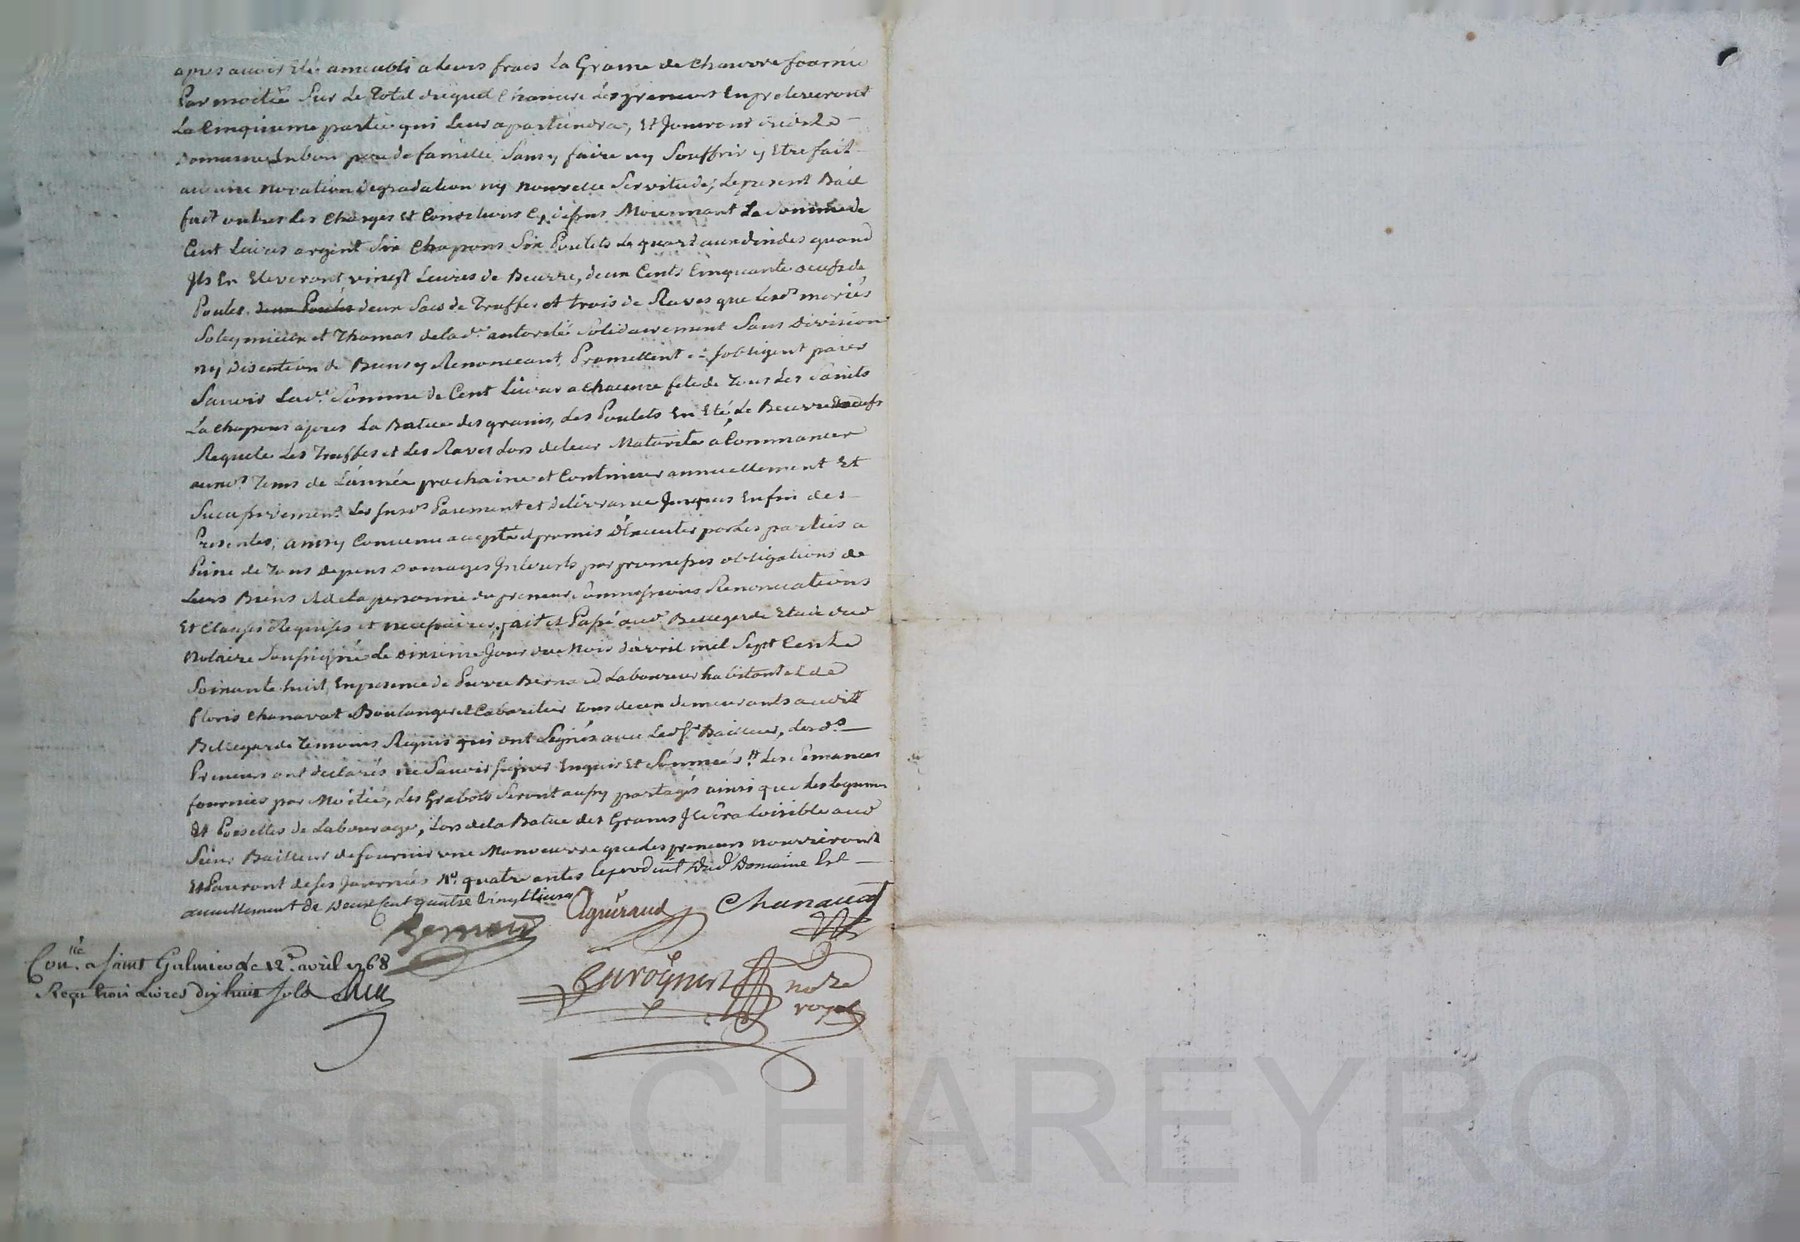 apres avoir été ameubli a leurs frais La Graine de Chanvre fournie
Par moitié Sur Le Total duquel Chanvre Les preneurs En preleveront
La Cinquieme partie qui Leur apartiendra, Et Jouiront dudit
Domaine En bon pere de famille Sans y faire ny Souffrir y Etre fait
aucune novation degradation ny nouvelle Servitude; Le present Bail
fait outre Les Charges Et Conditions Cy dessus Moiennant La Somme de
Cent Livres argent Six Chapons Six Poulets Le quart aux dindes quand
Ils En Eleveront, vingt Livres de Beurre, deux Cents Cinquante oeufs de
Poules, deux Sacs de Truffes et trois de Raves que Lesds mariés
Soleymieux et Thomas de lad. autorité Solidairement Sans Division
ny Discution de Biens y Renonceant Promettent et s'obligent paier
Scavoir Lad.e Somme de Cent Livres a Chacune fete de Tous Les Saints
La Chapons apres La Batue des grains, Les Poulets En Eté, Le Beurre
Requete Les Truffes et Les Raves Lors de leur Maturité a Commancer
aud. Tems de L'année prochaine et Continuer annuellement Et
Successivement Les susds Paiement et delivrance Jusques Enfin des
Presentes, ainsy Convenu accepté et promis D'Executer par Les parties a
Peine de Tous depens Domages Interests par promesses obligations de
Leurs Biens et de la personne du preneur Soumissions Renonciations
Et Clauses Requises et necessaires. fait et Passé aud. Bellegarde Etude dud
Notaire Soussigné Le onzieme Jour du Mois d'avril mil Sept Cent
Soixante huit, En presence de Pierre Bernard Laboureur habitant et de
Floris Chanavat Boulanger et Cabaretier Tous deux demeurants audit
Bellegarde Temoins Requis qui ont Signés avec Led. Sr Bailleur, Lesds
Preneurs ont declarés ne Scavoir signer Enquis Et Sommés Les Semances
fournies par Moitié, Les Grabots Seront aussy partagés ainsi que Les legumes
Et Poiselles de Labourage, Lors de la Batue des Grains Il Sera Loisible aud
Sieur Bailleur de fournir une Manoeuvre que Les preneurs nourriront
Et Paieront de ses Journées quatre Le produit dud. Domaine Est
annuellement de Deux Cent quatre vingt Livres
Bernard Aguiraud Chanavat
Con.lé a Saint Galmier le 12.e avril 1768
Reçu trois Livres dix huit sols
no.re
royal
Pascal CHAREYRON